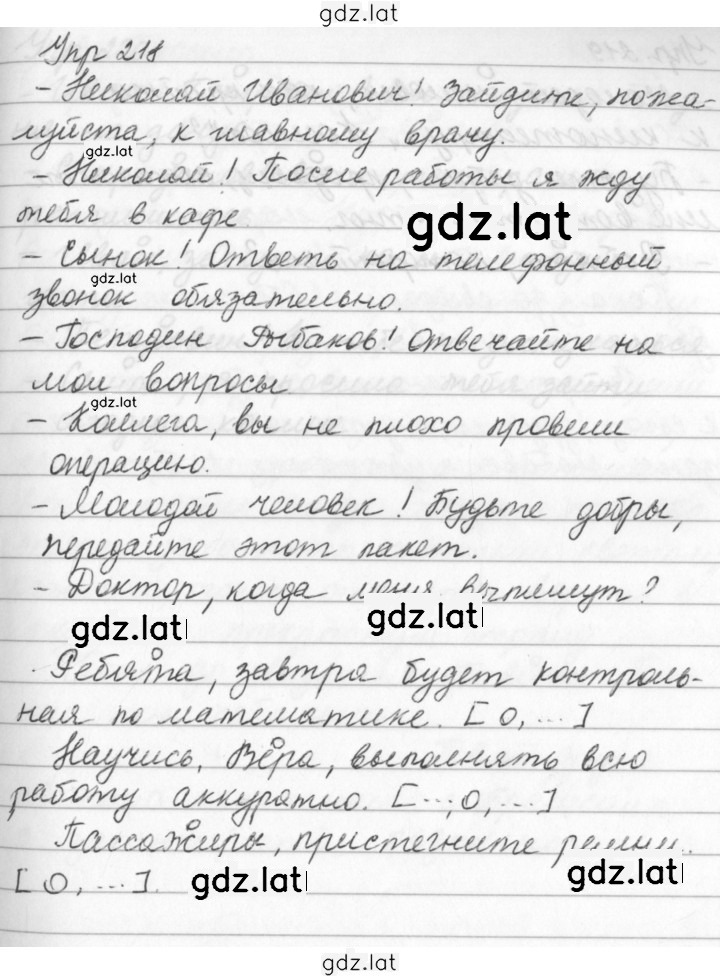 gdz.lat
Упр 218
- Николай Иванович! Зайдите, пожа-
луйста, к главному врачу.
gdz.lat
- Николай! После работы я жду
тебя в кафе.
gdz.lat
- Сынок! Ответь на телефонный
gdz.lat
звонок обязательно.
- Господин Рыбаков! Отвечайте на
мои вопросы
gdz.lat
- Коллега, вы не плохо провели
операцию.
- Молодой человек! Будьте добры,
передайте этот пакет.
- Доктор, когда меня выпишут?
gdz.lat
gdz.lat
Ребята, завтра будет контроль-
ная по математике. [О,...]
Научись, Вера, выполнять всю
работу аккуратно. [...,О,...]
Пассажиры, пристегните ремни.
[О,...].
gdz.lat
gdz.lat
gdz.lat